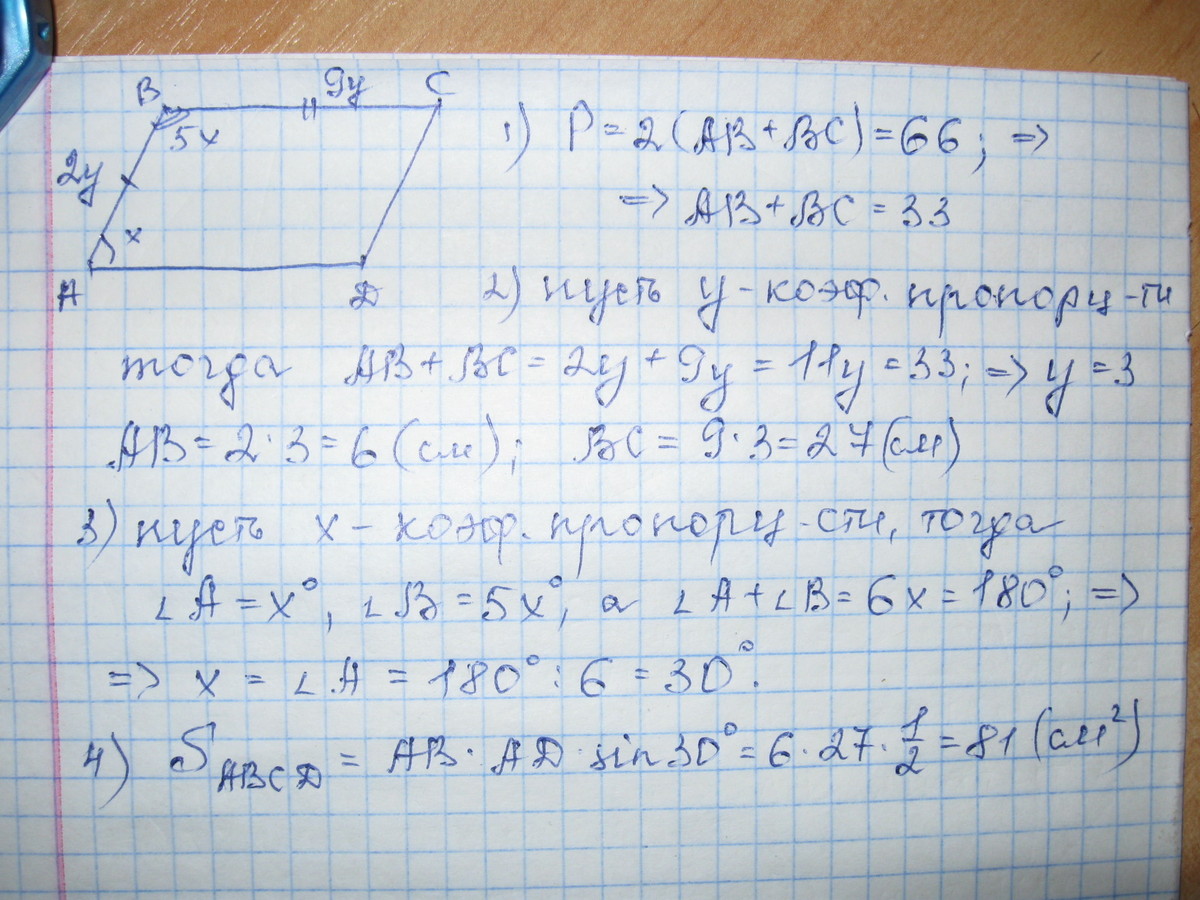 B 9y C
5x
2y
x
A D
1) P = 2(AB + BC) = 66; =>
=> AB + BC = 33
2) пусть y - коэф. пропорц-ти
тогда AB + BC = 2y + 9y = 11y = 33; => y = 3
AB = 2·3 = 6 (см); BC = 9·3 = 27 (см)
3) пусть x - коэф. пропорц-сти, тогда
∠A = x°, ∠B = 5x°, а ∠A + ∠B = 6x = 180°; =>
=> x = ∠A = 180° : 6 = 30°.
4) S ABCD = AB · AD · sin 30° = 6 · 27 · 1/2 = 81 (см²)